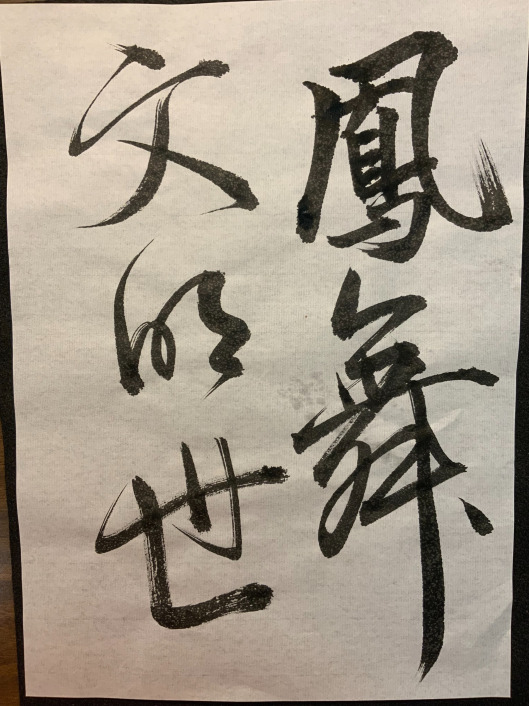 鳳舞
文明世